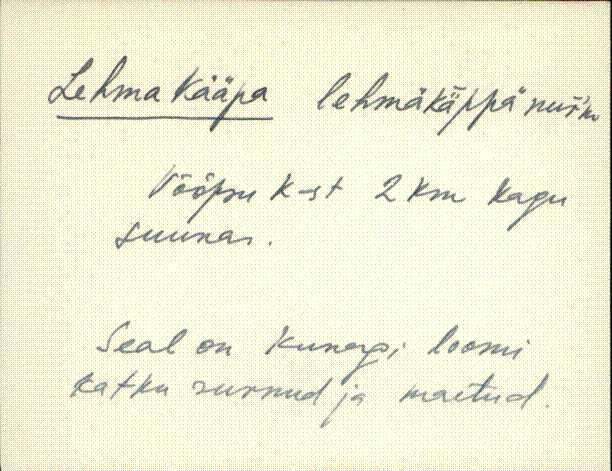 Lehma Kääpa lehmäkäppä
Võõpsu k-st 2 km kagu
suunas.
Seal on kunagi loomi
katku surnud ja maetud.